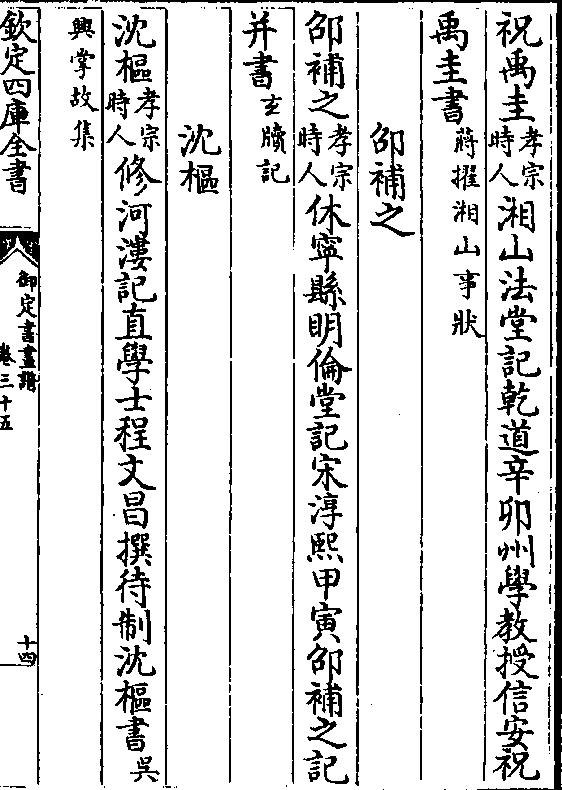 祝禹圭孝宗時人湘山法堂記乾道辛卯州學教授信安祝
禹圭書蔣擢湘山事狀
邵補之
邵補之孝宗時人休寧縣明倫堂記宋淳熙甲寅邵補之記
并書玄牘記
沈樞
沈樞孝宗時人修河漊記直學士程文昌撰待制沈樞書吳
興掌故集
欽定四庫全書
御定書畫譜
卷三十五
十四